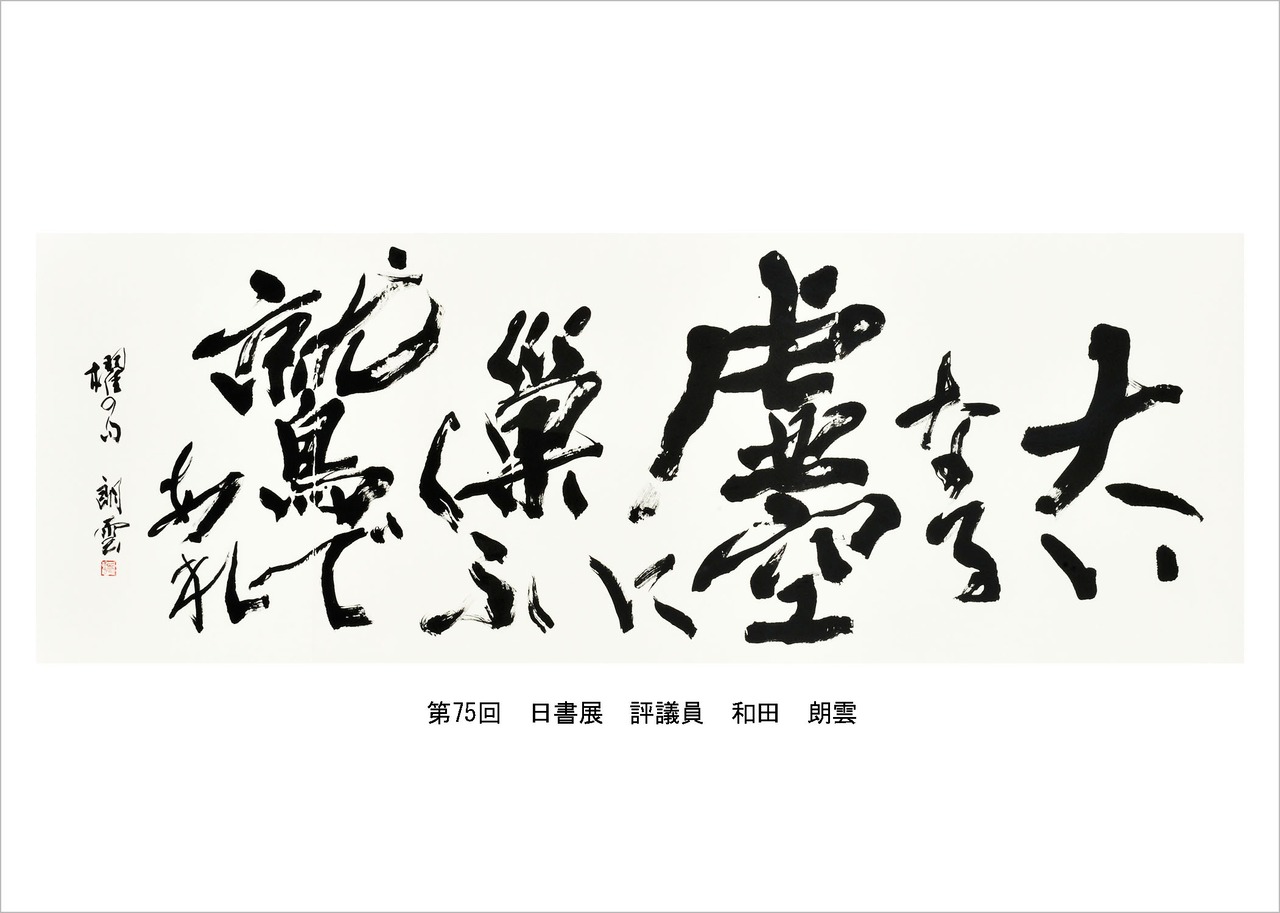 大い
なる
虚空
に
巣くふ
鷲で
あれ
櫂の句 朗雲
第75回 日書展 評議員 和田 朗雲